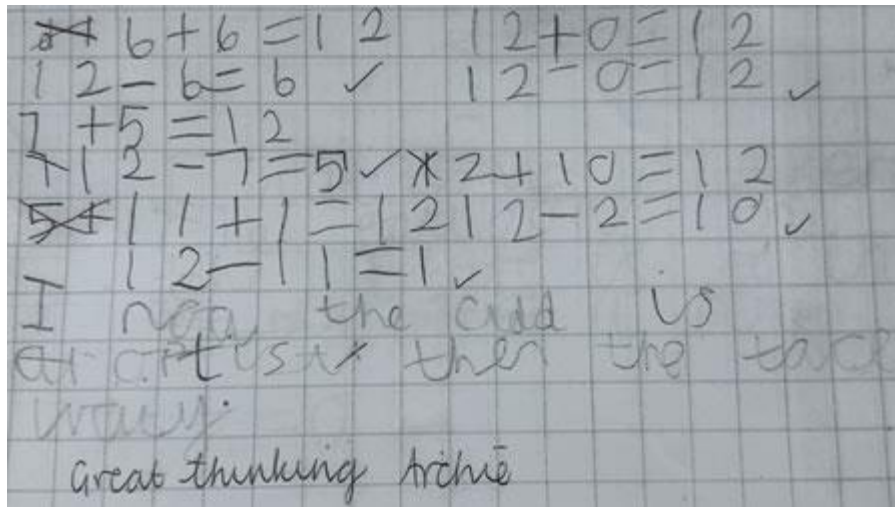 6+6=12 12+0=12
12-6=6 ✓ 12-0=12 ✓
7+5=12
12-7=5 ✓ 2+10=12
11+1=12 12-2=10 ✓
12-11=1 ✓
I the add is
then the tack
way.
Great thinking Archie